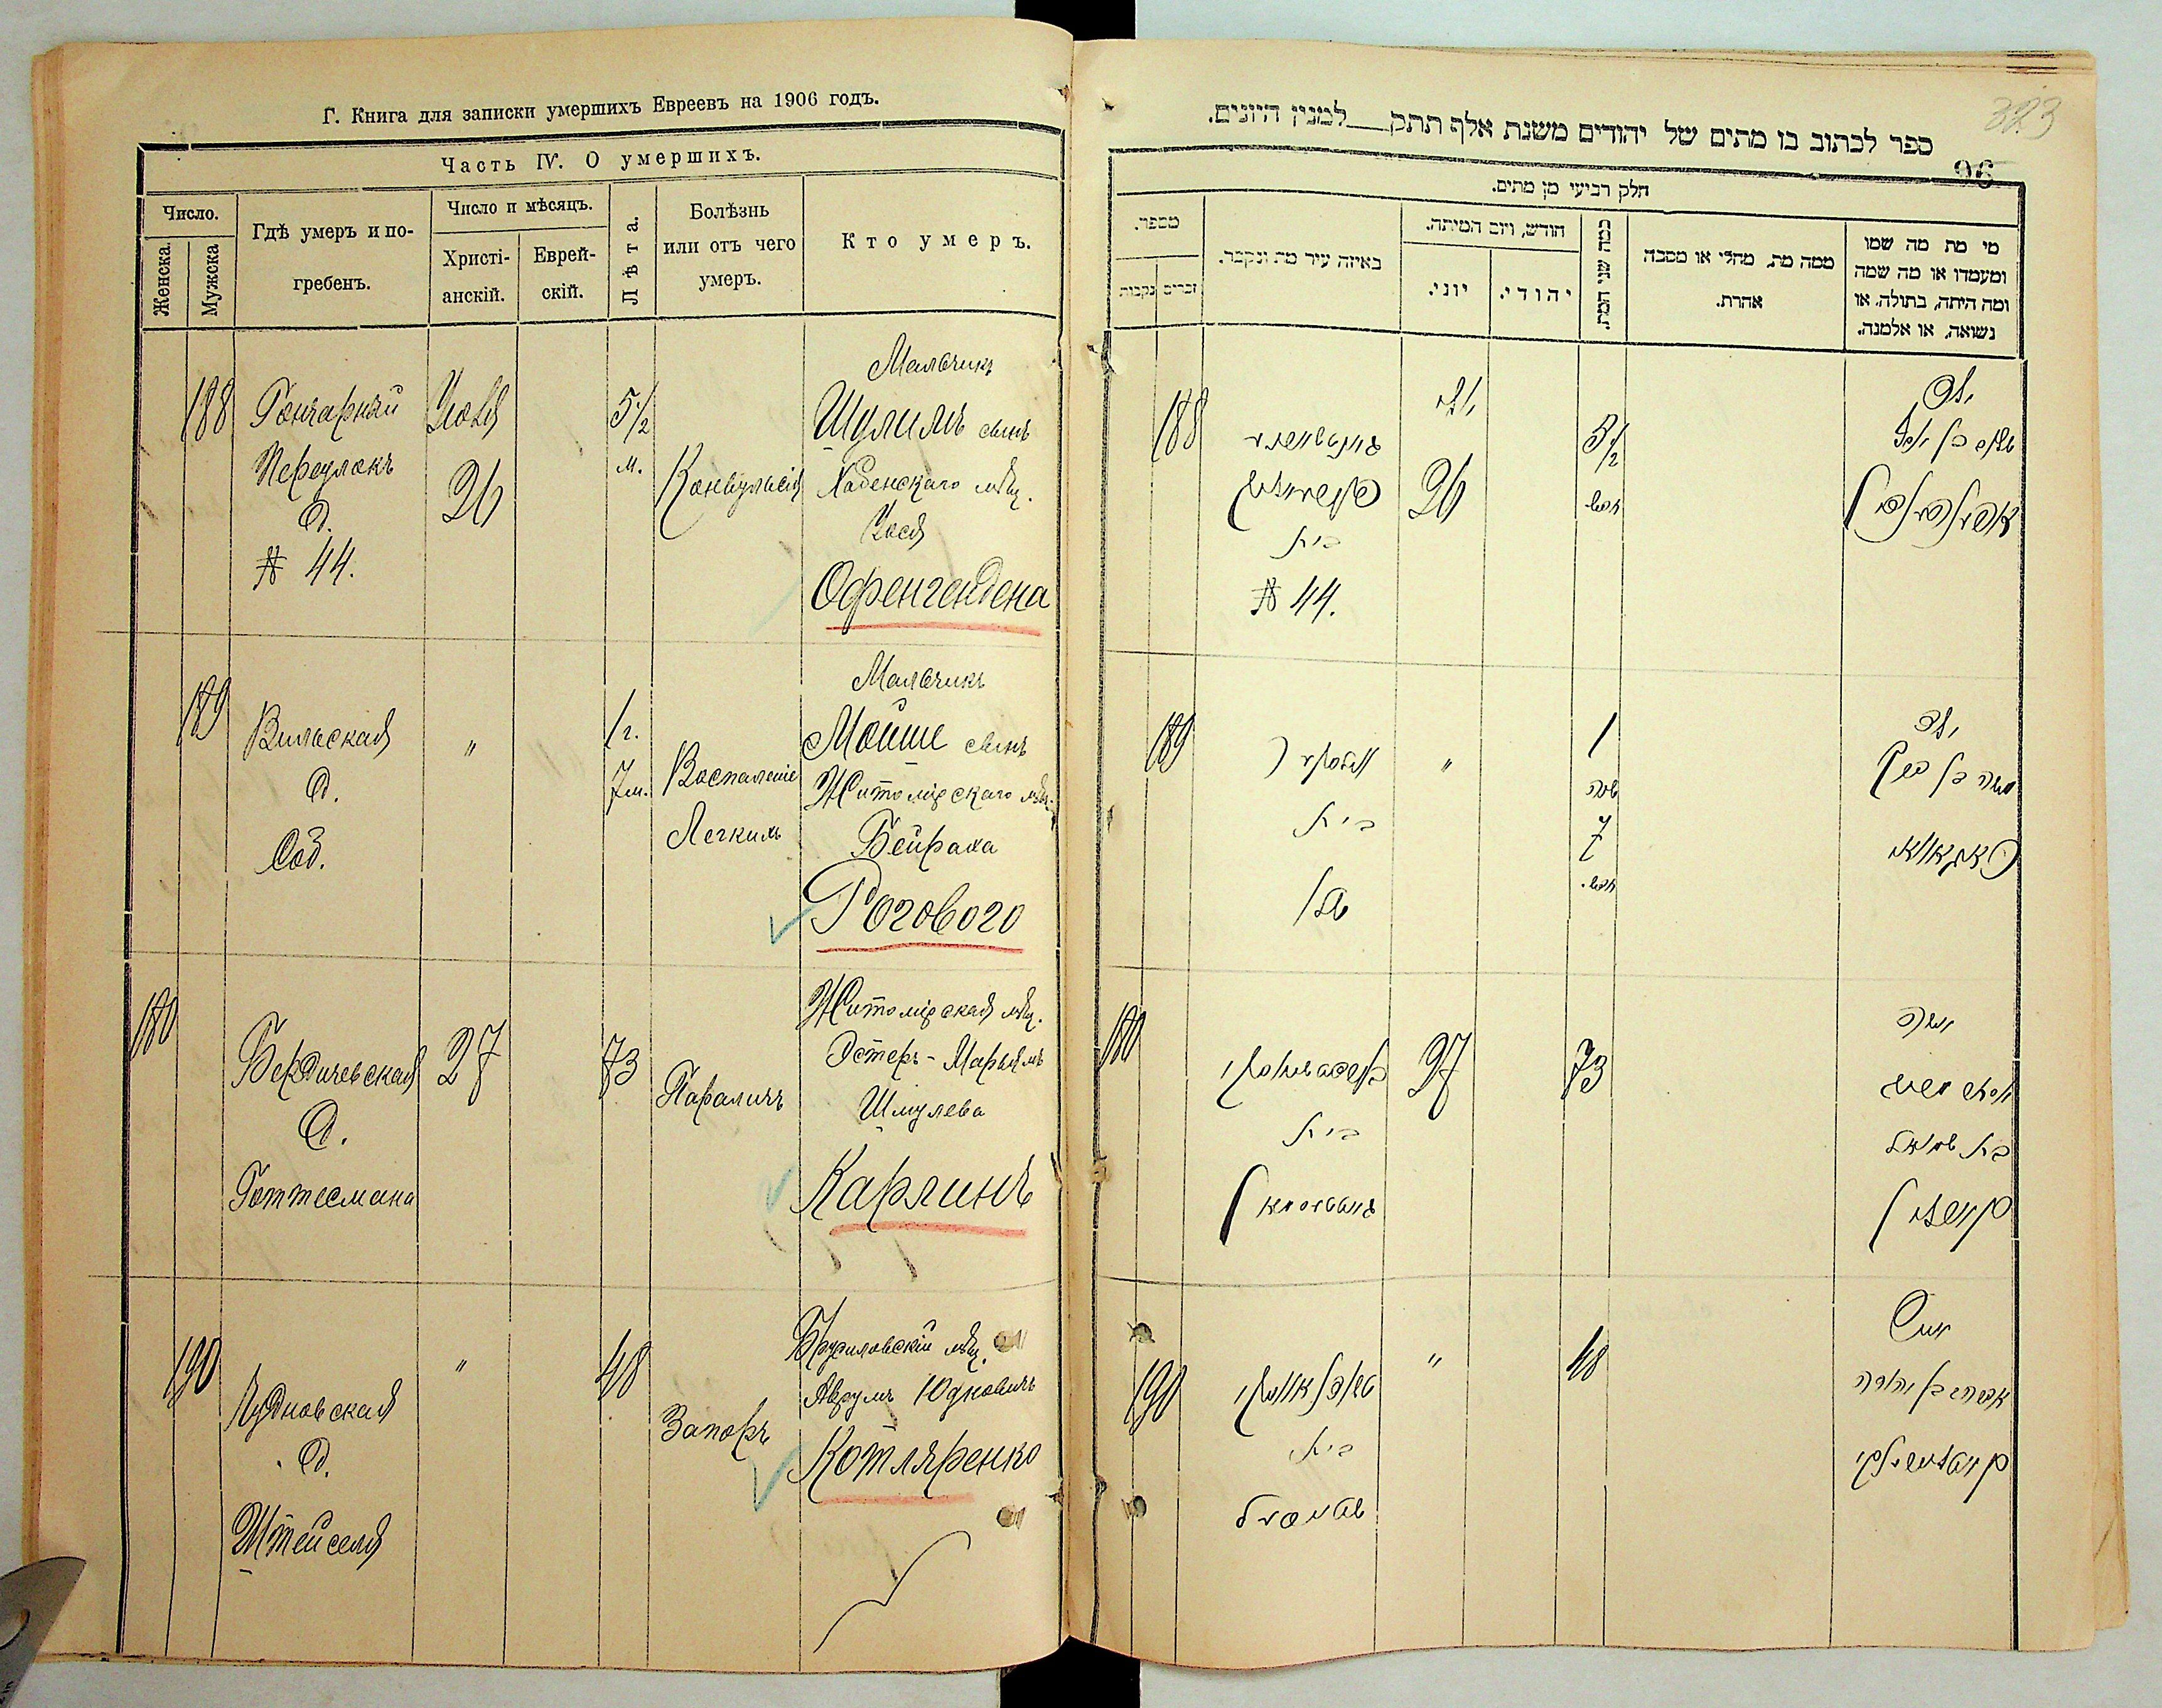 Г. Книга для записки умершихъ Евреевъ на 1906 годъ.
Часть IV. О умершихъ.
Число.
Женска
Мужска
Гдѣ умеръ и по-
гребенъ.
Число и мѣсяцъ.
Христі-
анскій.
Еврей-
скій.
Лѣта.
Болѣзнь
или отъ чего
умеръ.
Кто умеръ.
188
Гончарный
Переулокъ
д.
№ 44.
Юля
26
5 1/2
м.
Конвульсія
Мальчикъ
Шулимъ сынъ
мѣщ.
Іося
Офенгендена
189
Вильская
д.
Соб.
"
1 г.
7 м.
Воспаленіе
Легкихъ
Мальчикъ
Мойше сынъ
Житомірскаго мѣщ.
Бейраха
Рогового
180
Бердичевская
д.
Готтесмана
27
73
Параличъ
Житомірская мѣщ.
Эстеръ-Марьямъ
Шмулева
Карлинъ
190
Чудновская
д.
Штейселя
"
48
Запоръ
Брусиловскій мѣщ.
Аврумъ Юдковичъ
Котляренко
323
ספר לכתוב בו מתים של יהודים משנת אלף תתק למנין היונים.
96
חלק רביעי מן מתים.
מספר.
זכרים
נקבות
באיזה עיר מת ונקבר.
חודש, ויום המיתה.
יוני.
יהודי.
כמה שני המת.
ממה מת, מחלי או מסבה
אחרת.
מי מת מה שמו
ומעמדו או מה שמה
ומה היתה, בתולה, או
נשואה, או אלמנה.
188
בית
№ 44.
יולי
26
5 1/2
חדש
ילד
189
בית
"
1
שנה
7
חדש.
ילד
משה בן
180
בית
27
73
אסתר מרים
בת שמואל
קארלין
190
בית
"
48
אברהם בן יהודה